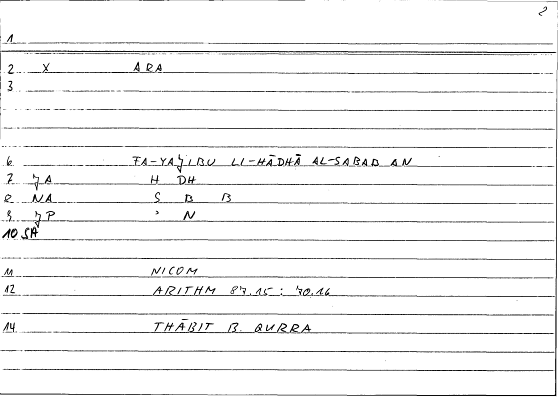 2
1
2 X ARA
3
6 FA-YAǦIBU LI-HĀḎHĀ AL-SABAB AN
7 ǦA H DH
8 NA S B B
9 ǦP ʾ N
10 SA
11 NICOM
12 ARITHM 87.15 : 70.16
14 THĀBIT B. QURRA